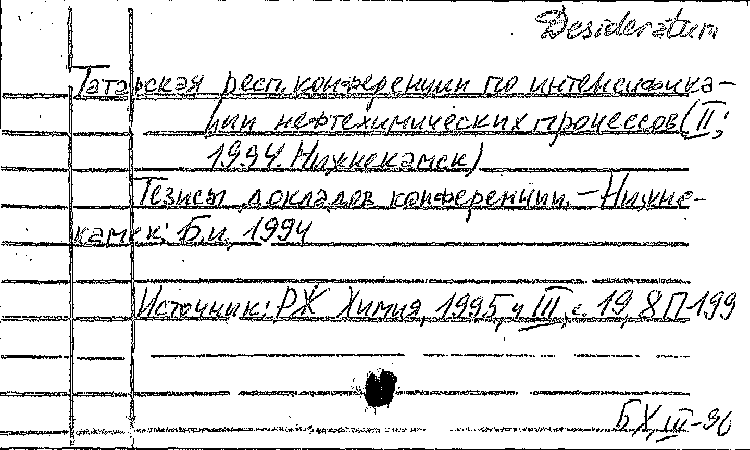 Desideratum
Татарская респ. конференции по интенсифика-
ции нефтехимических процессов (II;
1994. Нижнекамск)
Тезисы докладов конференции. – Нижне-
камск: Б.и., 1994
Источник: РЖ Химия, 1995, ч III, с. 19, 8П-199
БХ, III-96